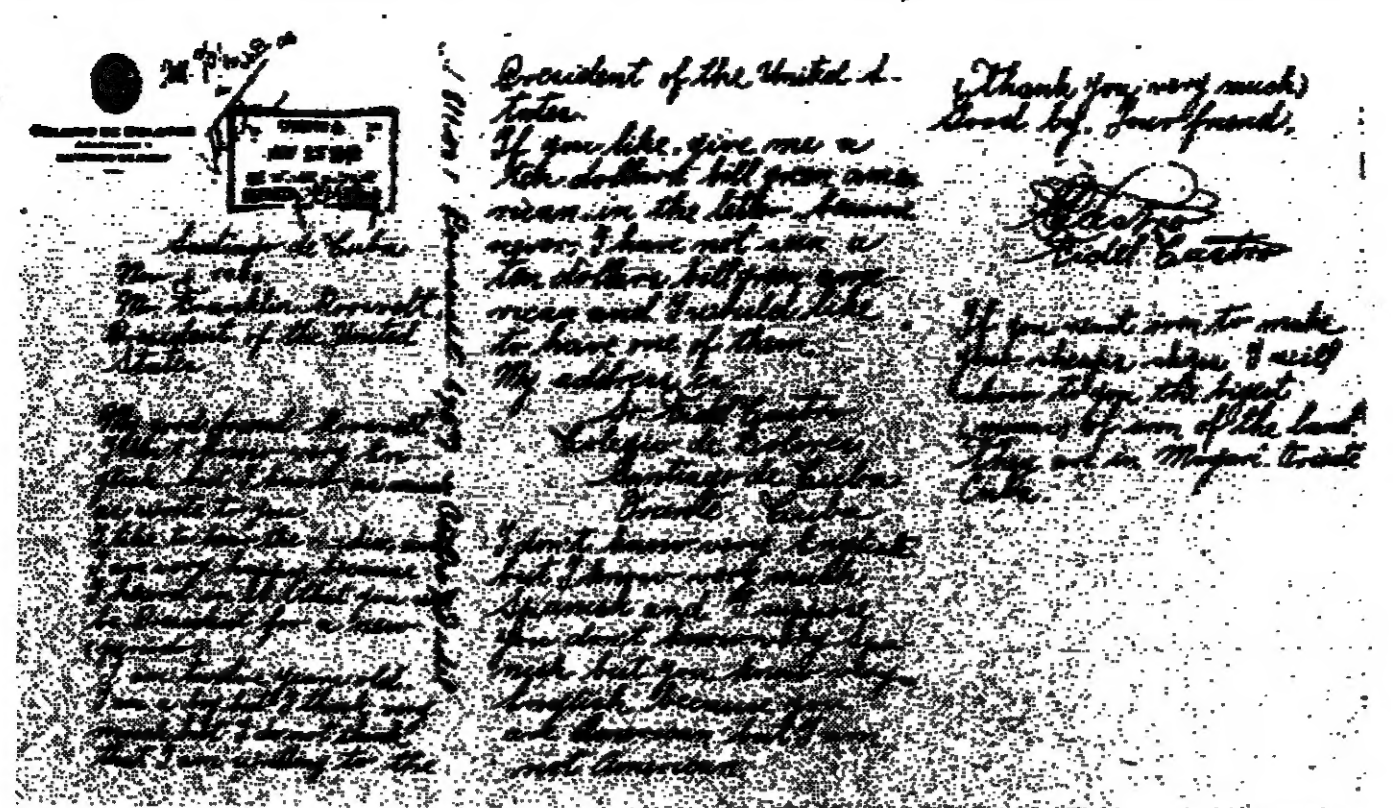 COLEGIO DE DOLORES
SANTIAGO DE CUBA
Santiago de Cuba
Mr. Franklin Roosvelt,
President of the United
States.
My good friend Roosvelt
I don't know very En-
glish, but I know as much
as write to you.
I like to hear the radio, and
I am very happy, because
I heard in it, that you will
be President for a new
I am twelve years old.
I am a boy but I think very
much but I do not think
that I am writting to the
President of the United S-
tates.
If you like, give me a
ten dollars bill green ame-
rican, in the letter, because
never, I have not seen a
ten dollars bill green ame-
rican and I would like
to have one of them.
My address is:
Sr. Fidel Castro
Colegio de Dolores
Santiago de Cuba
Oriente Cuba
I don't know very English
but I know very much
Spanish and I suppose
you don't know very Spa-
nish but you know very
English because you
are American but I am
not American.
(Thank you very much)
Good by. Your friend,
Castro
Fidel Castro
If you want iron to make
your ships, I will
show to you the bigest
(minas) of iron of the land.
They are in Mayari Oriente
Cuba